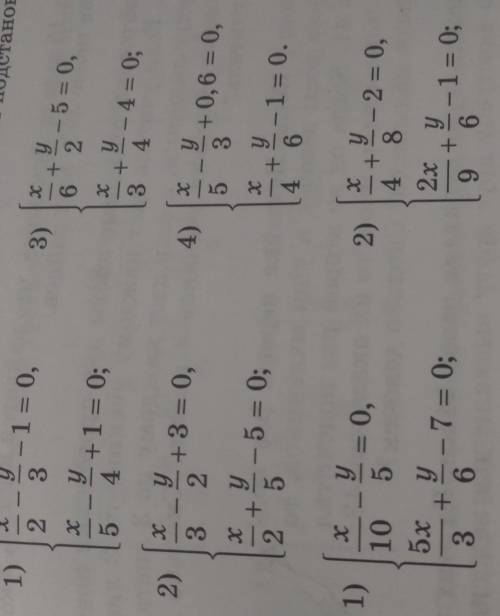 подстанов
1) { x/2 − y/3 − 1 = 0,
x/5 − y/4 + 1 = 0;
2) { x/3 − y/2 + 3 = 0,
x/2 + y/5 − 5 = 0;
3) { x/6 + y/2 − 5 = 0,
x/3 + y/4 − 4 = 0;
4) { x/5 − y/3 + 0,6 = 0,
x/4 + y/6 − 1 = 0.
1) { x/10 − y/5 = 0,
5x/3 + y/6 − 7 = 0;
2) { x/4 + y/8 − 2 = 0,
2x/9 + y/6 − 1 = 0;